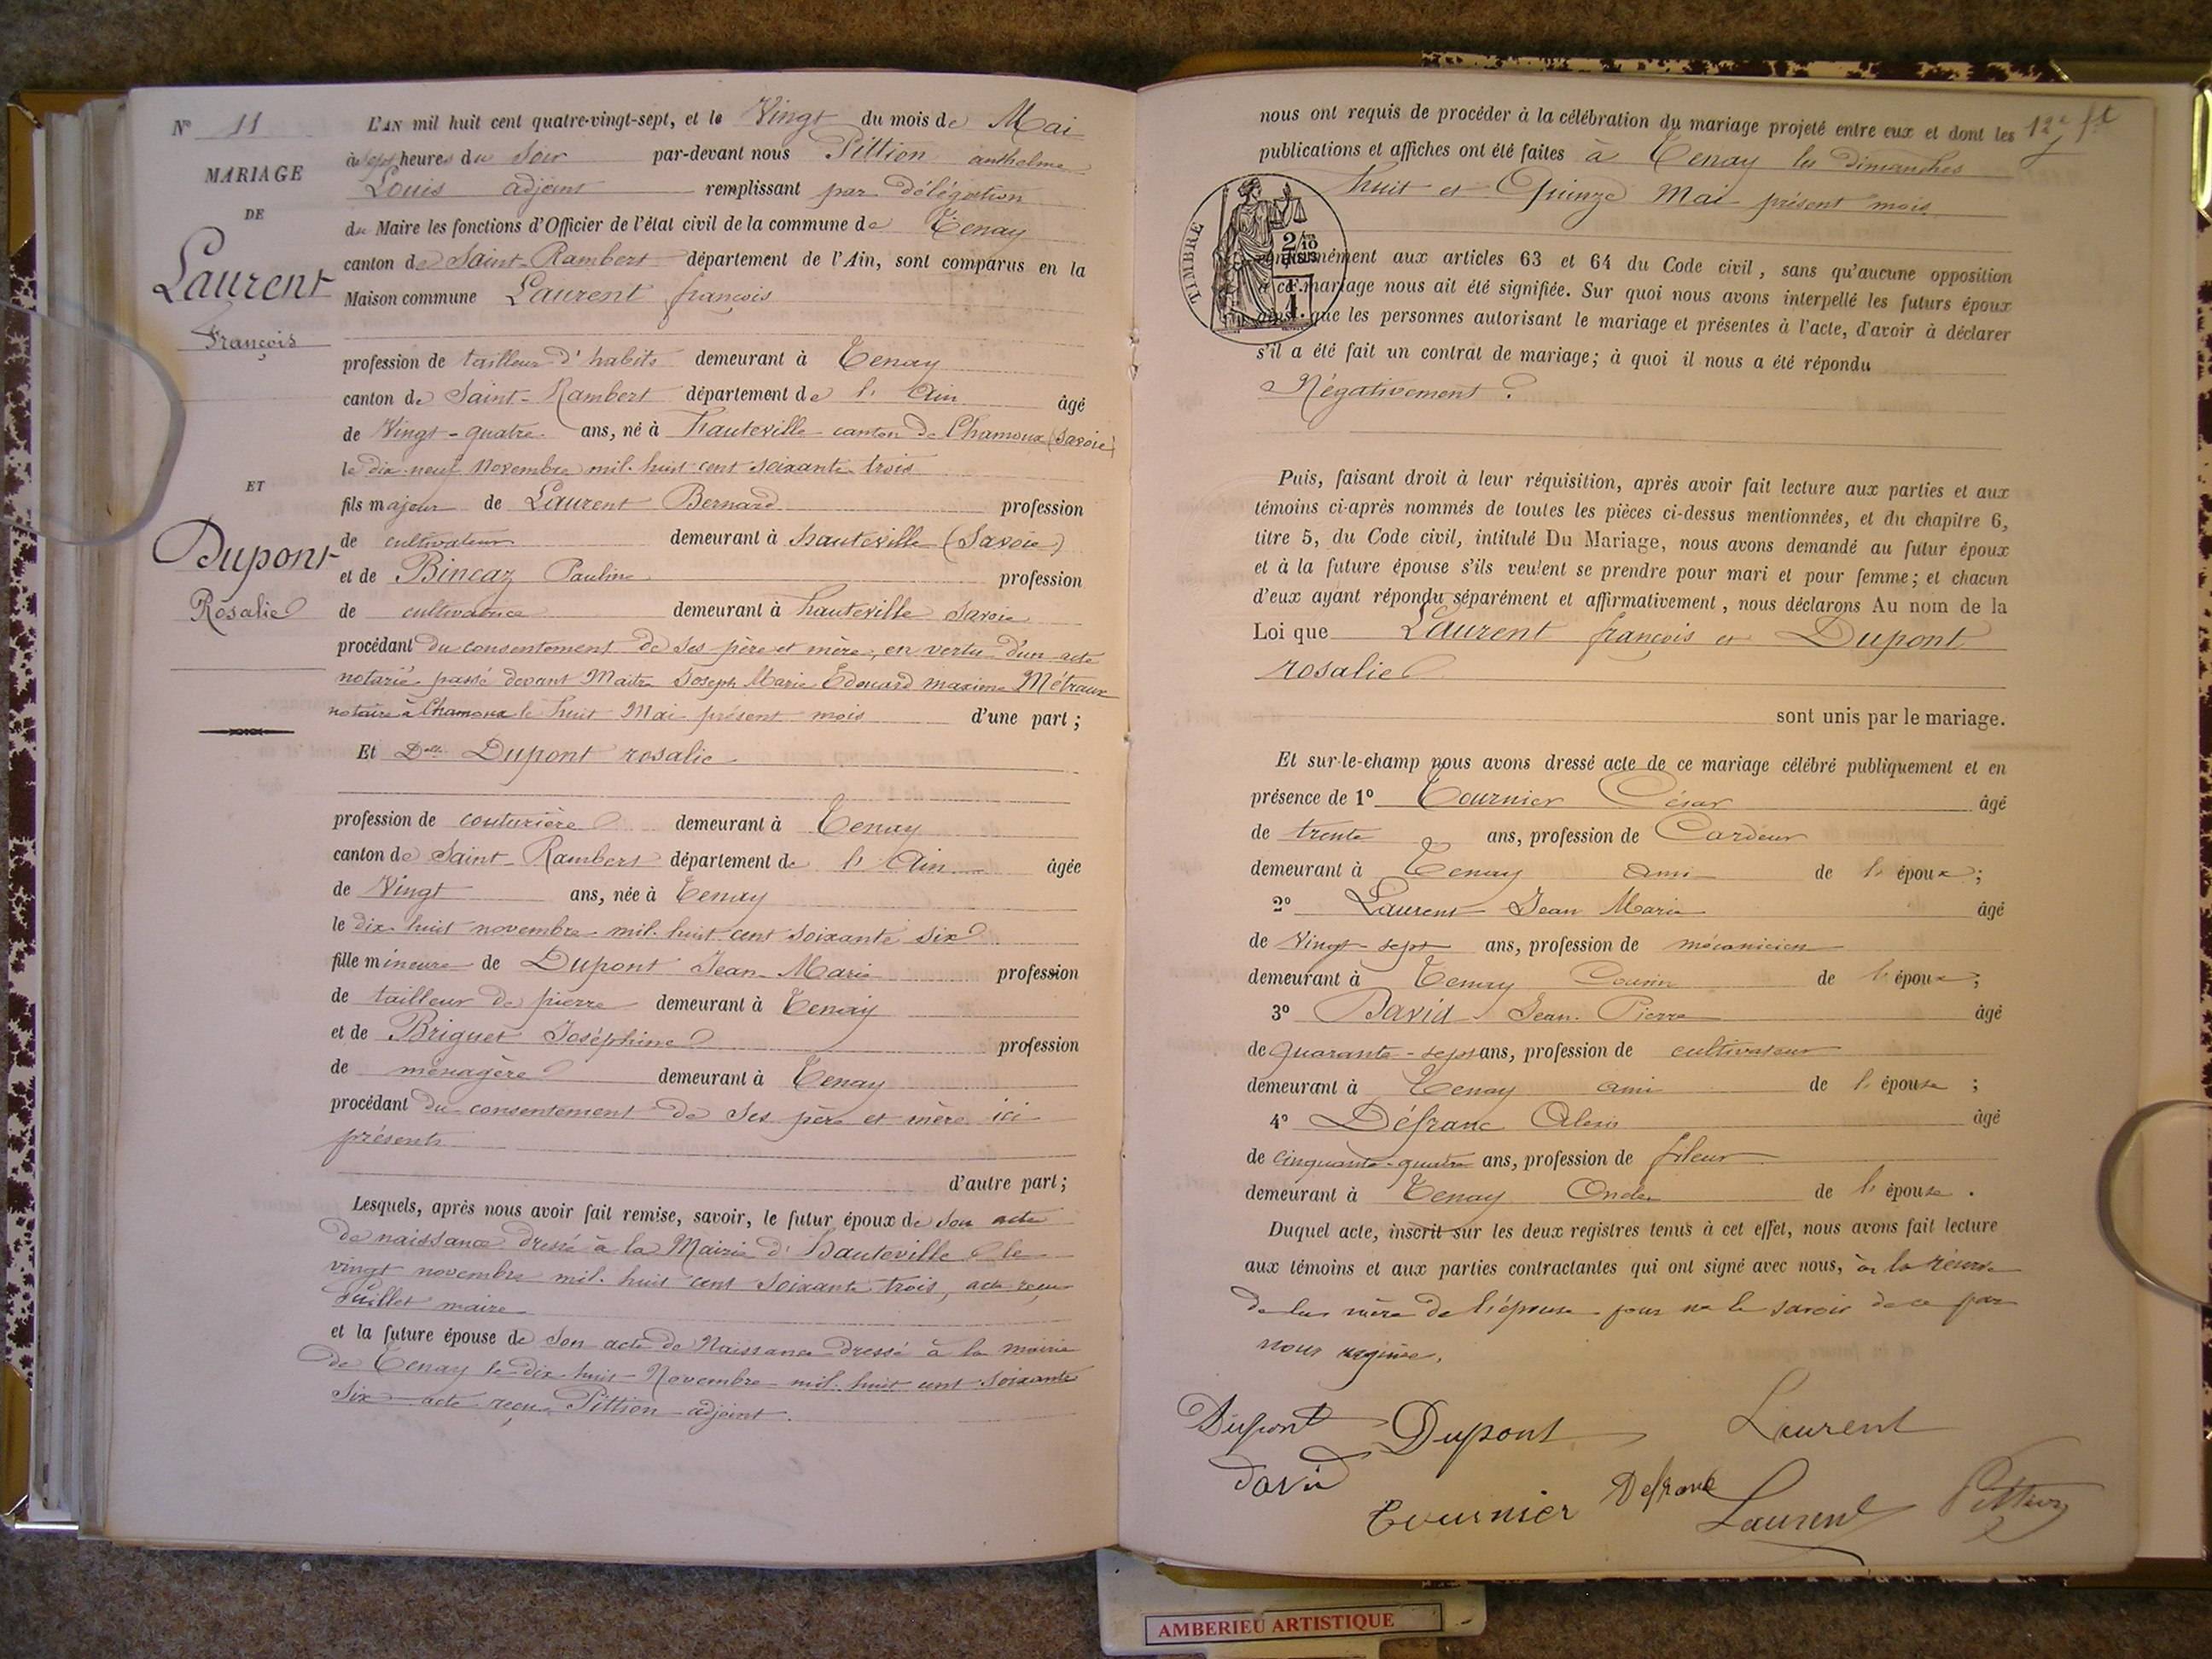 N° 11
MARIAGE
DE
Laurent
François
ET
Dupont
Rosalie
L'AN mil huit cent quatre-vingt-sept, et le Vingt du mois de Mai
à sept heures du Soir par-devant nous Pittion anthelme
Louis adjoint remplissant par délégation
du Maire les fonctions d'Officier de l'état civil de la commune de Tenay
canton de Saint-Rambert département de l'Ain, sont comparus en la
Maison commune Laurent françois
profession de tailleur d'habits demeurant à Tenay
canton de Saint-Rambert département de l'Ain âgé
de Vingt-quatre ans, né à hauteville canton de Chamoux (Savoie)
le dix-neuf Novembre mil huit cent soixante trois
fils majeur de Laurent Bernard profession
de cultivateur demeurant à hauteville (Savoie)
et de Bincaz Pauline profession
de cultivatrice demeurant à hauteville Savoie
procédant du consentement de ses père et mère, en vertu d'un acte
notarié passé devant Maitre Joseph Marie Edouard maxime Métraux
notaire à Chamoux le huit Mai présent mois d'une part;
Et Delle Dupont rosalie
profession de couturière demeurant à Tenay
canton de Saint-Rambert département de l'Ain âgée
de Vingt ans, née à Tenay
le dix huit novembre mil huit cent soixante six
fille mineure de Dupont Jean-Marie profession
de tailleur de pierre demeurant à Tenay
et de Briguet Joséphine profession
de ménagère demeurant à Tenay
procédant du consentement de ses père et mère ici
présents
d'autre part;
Lesquels, après nous avoir fait remise, savoir, le futur époux de son acte
de naissance dressé à la Mairie d'hauteville le
vingt novembre mil huit cent soixante trois, acte reçu
Juillet maire
et la future épouse de son acte de Naissance dressé à la mairie
de Tenay le dix huit Novembre mil huit cent soixante
six acte reçu Pittion adjoint.
nous ont requis de procéder à la célébration du mariage projeté entre eux et dont les
publications et affiches ont été faites à Tenay les dimanches
huit et Quinze Mai présent mois
TIMBRE
2/10 EN SUS
1 F.
conformément aux articles 63 et 64 du Code civil, sans qu'aucune opposition
à ce mariage nous ait été signifiée. Sur quoi nous avons interpellé les futurs époux
ainsi que les personnes autorisant le mariage et présentes à l'acte, d'avoir à déclarer
s'il a été fait un contrat de mariage; à quoi il nous a été répondu
Négativement
Puis, faisant droit à leur réquisition, après avoir fait lecture aux parties et aux
témoins ci-après nommés de toutes les pièces ci-dessus mentionnées, et du chapitre 6,
titre 5, du Code civil, intitulé Du Mariage, nous avons demandé au futur époux
et à la future épouse s'ils veulent se prendre pour mari et pour femme; et chacun
d'eux ayant répondu séparément et affirmativement, nous déclarons Au nom de la
Loi que Laurent françois et Dupont
rosalie
sont unis par le mariage.
Et sur-le-champ nous avons dressé acte de ce mariage célébré publiquement et en
présence de 1° Tournier César âgé
de trente ans, profession de Cardeur
demeurant à Tenay ami de l'époux;
2° Laurent Jean Marie âgé
de Vingt-sept ans, profession de mécanicien
demeurant à Tenay Cousin de l'époux;
3° David Jean-Pierre âgé
de quarante-sept ans, profession de cultivateur
demeurant à Tenay ami de l'épouse;
4° Défranc Alexis âgé
de cinquante-quatre ans, profession de fileur
demeurant à Tenay Oncle de l'épouse.
Duquel acte, inscrit sur les deux registres tenus à cet effet, nous avons fait lecture
aux témoins et aux parties contractantes qui ont signé avec nous, à la réserve
de la mère de l'épouse pour ne le savoir de ce par
nous requise.
Dupont Dupont Laurent
David
Tournier Defranc Laurent Pittion
AMBERIEU ARTISTIQUE